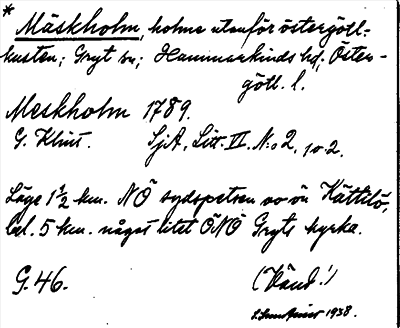 *
Mäskholm, holme utanför östergötl.-
kusten; Gryt sn; Hammarkinds hd, Öster-
götl. l.
Meskholm 1789.
G. Klint. SjA, Litt. II. N:o 2, 10 2.
Läge 1 1/2 km. NÖ sydspetsen av ön Kättilö,
bel. 5 km. något litet ÖNÖ Gryts kyrka.
G. 46. (Vänd!)
1938.